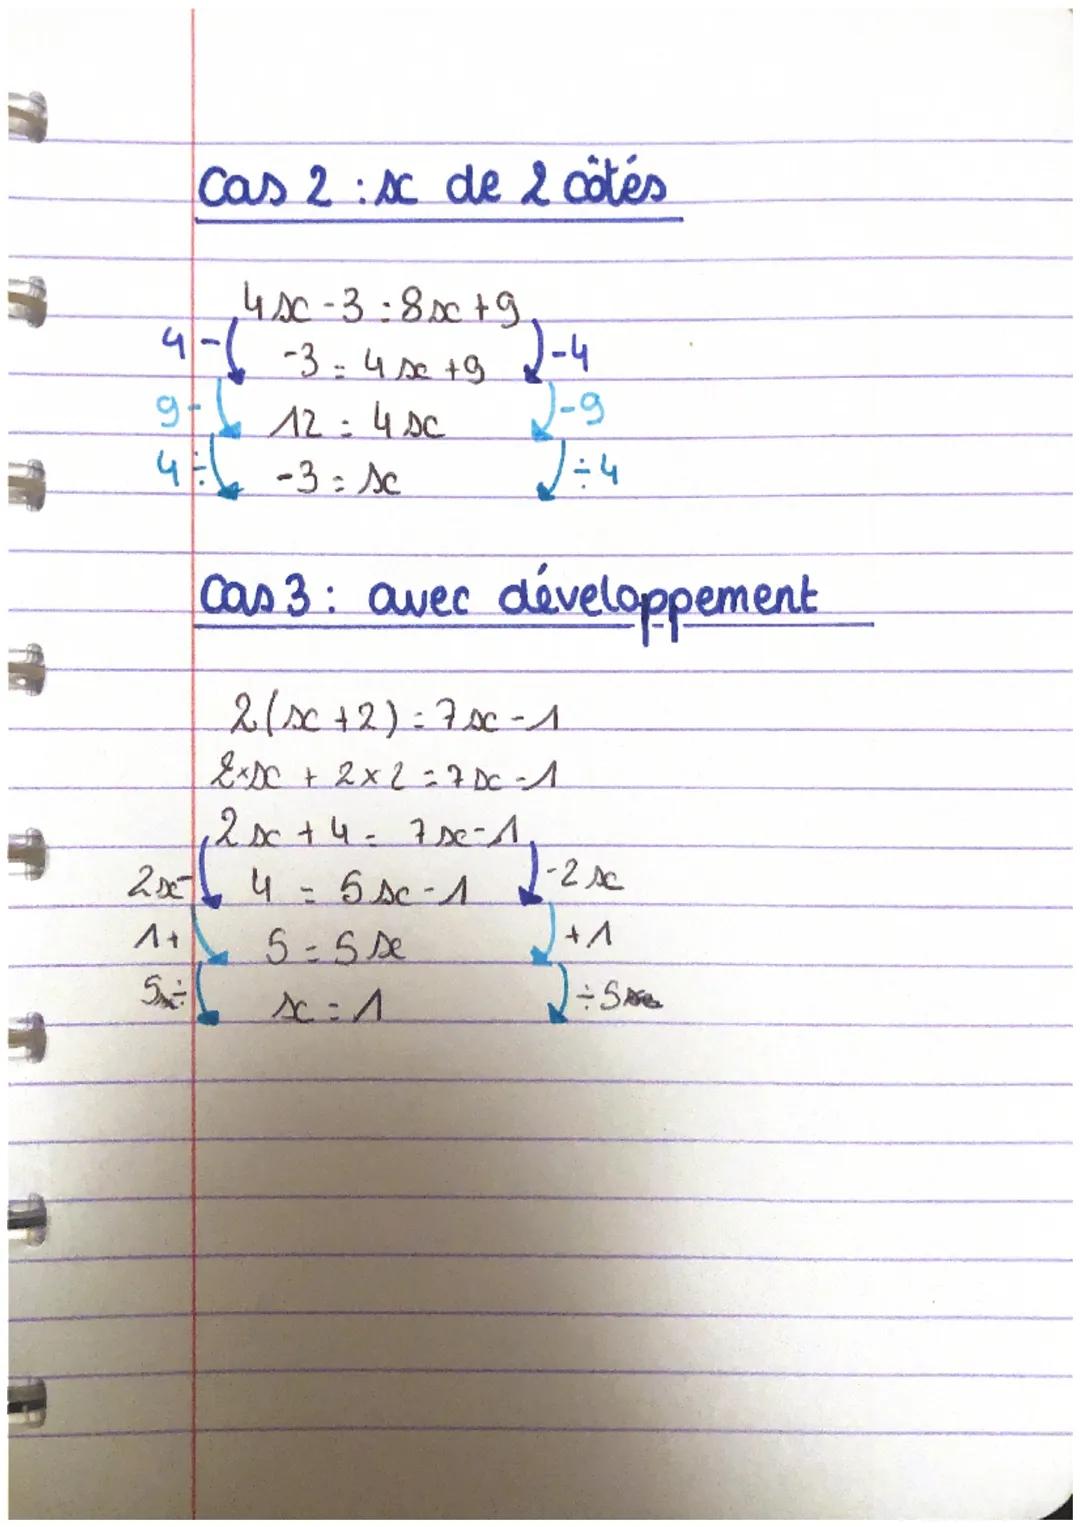 Cas 2 : x de 2 côtés
4x - 3 = 8x + 9
4 - -3 = 4x + 9 -4
9 - 12 = 4x -9
4 ÷ -3 = x ÷ 4
Cas 3 : avec développement
2(x + 2) = 7x - 1
2×x + 2×2 = 7x - 1
2x + 4 = 7x - 1
2x- 4 = 5x - 1 -2x
1+ 5 = 5x +1
5 ÷ x = 1 ÷ 5